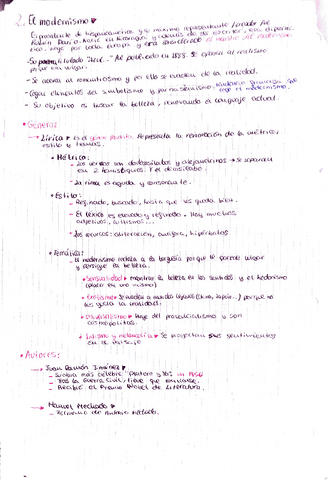 2. El modernismo
Es proveniente de hispanoamérica y el máximo representante/creador fue
Rubén Darío. Nació en Nicaragua y además de ser escritor, era diplomá-
tico. Viajó por toda Europa y era considerado el maestro del modernismo.
- Su poema titulado "Azul..." fue publicado en 1888. Se opone al realismo
porque era vulgar.
- Se acerca al romanticismo y por ello se evaden de la realidad.
- Cogen elementos del simbolismo y parnasianismo: tendencias francesas que
cogió el modernismo.
- Su objetivo es buscar la belleza, renovando el lenguaje actual.
• Género:
Lírica • Es el género predilecto. Representa la renovación de la métrica,
estilo y temas.
• Métrica:
- Los versos son dodecasílabos y alejandrinos → Se separan
en 2 hemistiquios. Y el decasílabo.
- La rima es aguda y consonante.
• Estilo:
- Refinado, buscado, hasta que les queda bien.
- El léxico es elevado y refinado. Hay muchos
adjetivos, cultismos...
- Los recursos: aliteración, analogía, hipérbatos
• Temática:
- El modernismo rechaza a la burguesía porque le parece vulgar
y persigue la belleza.
• Sensualidad • mostrar la belleza en los sentidos y el hedonismo
(placer en uno mismo)
• Exotismo • Se evaden a mundos lejanos (China, Japón...) porque no
les gusta la realidad.
• Cosmopolitismo • Huye del provincialismo y son
cosmopolitas.
• Intimismo y melancolía • Se proyectan sus sentimientos
en el paisaje
• Autores:
→ Juan Ramón Jiménez •
- Su obra más célebre "Platero y yo" en prosa
- Tras la Guerra Civil, tiene que exiliarse.
- Recibió el Premio Nobel de Literatura.
→ Manuel Machado •
- Hermano de Antonio Machado.